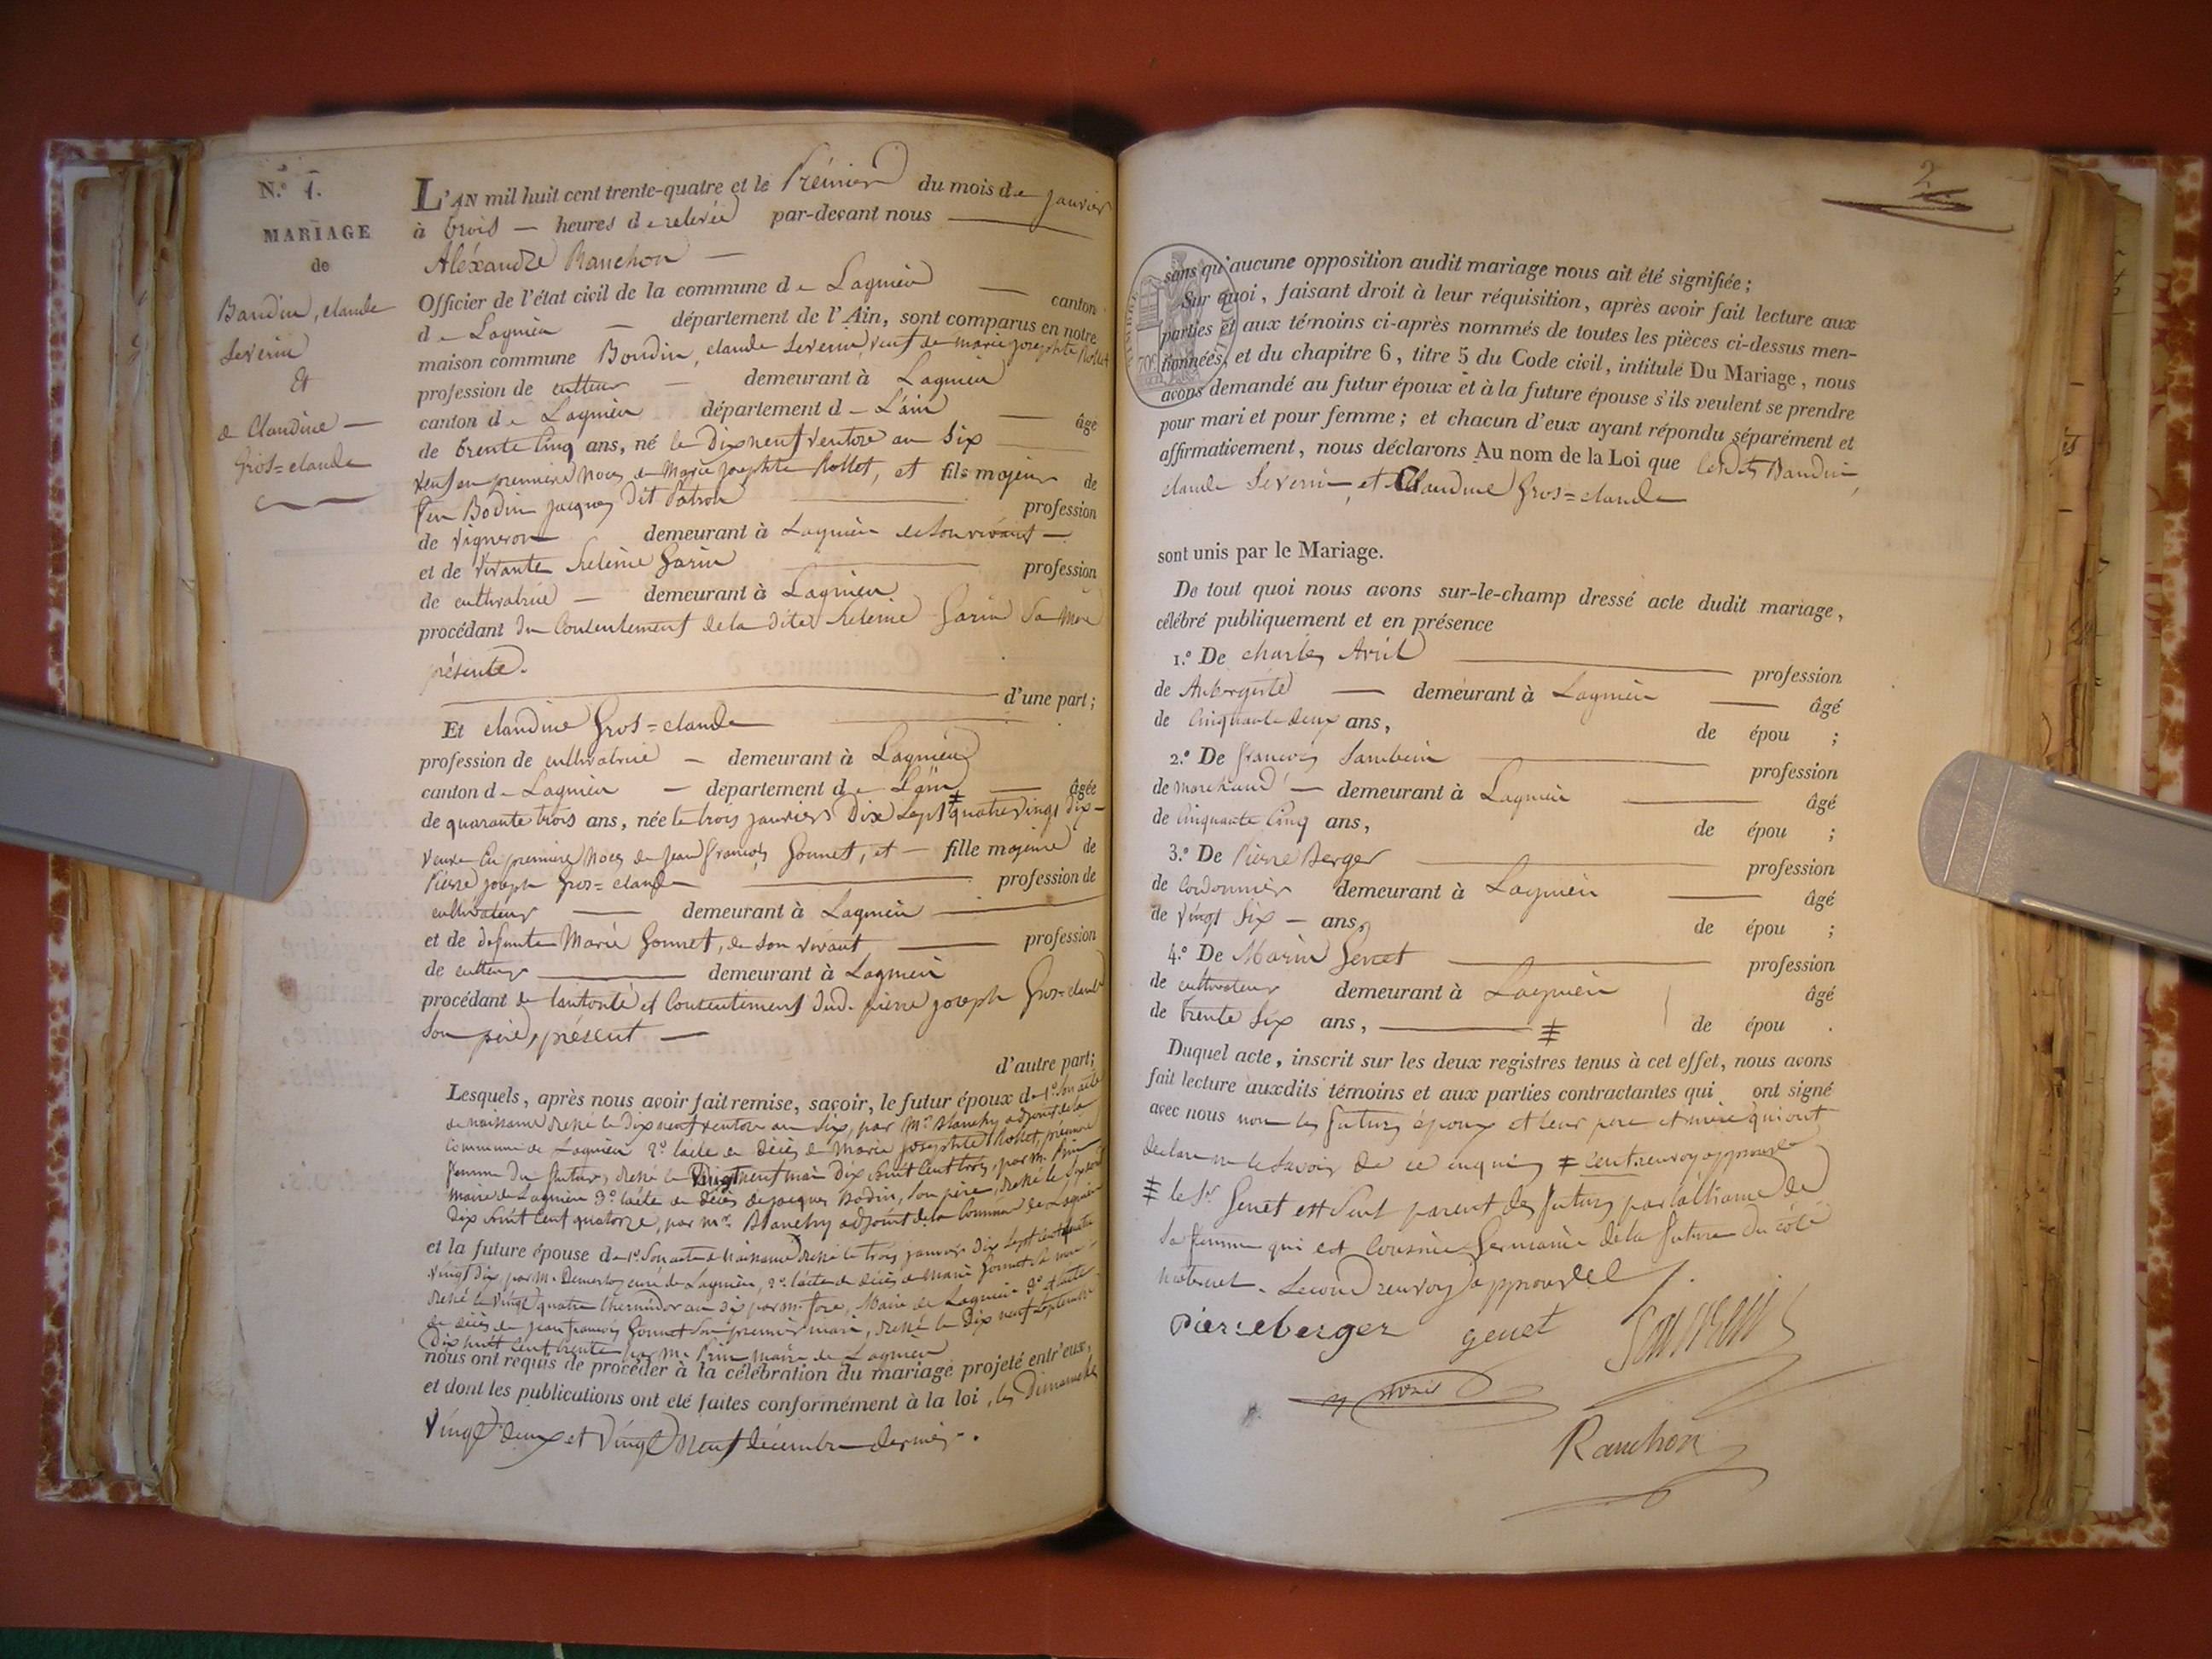 N.° 1.
MARIAGE
de
Baudin, claude
Severin
Et
de Claudine —
Gros=claude
L'AN mil huit cent trente-quatre et le Prémier du mois de janvier
à trois — heures de relevée par-devant nous
Aléxandre Ranchon —
Officier de l'état civil de la commune de Lagnieu — canton
de Lagnieu — département de l'Ain, sont comparus en notre
maison commune Boudin, claude Severin, veuf de marie josephte Rollet
profession de culteur — demeurant à Lagnieu
canton de Lagnieu département de L'ain — âgé
de trente cinq ans, né le Dixneuf ventose an Six
veuf en premiere noces de Marie josephte Rollet, et fils majeur de
feu Bodin jacques Dit Patron profession
de vigneron demeurant à Lagnieu de son vivant —
et de vivante Garin profession
de cultivatrice — demeurant à Lagnieu
procédant du Consentement de la dite Garin Sa Mere
présente.
d'une part;
Et claudine Gros=claude
profession de cultivatrice — demeurant à Lagnieu
canton de Lagnieu — département de L'ain — âgée
de quarante trois ans, née le trois janvier Dix Sept ‡ quatre vingt dix —
veuve En premiere noces de Jean françois Gonnet, et — fille majeure de
Pierre joseph Gros=claude profession de
cultivateur — demeurant à Lagnieu
et de defunte Marie Gonnet, de son vivant profession
de culteur demeurant à Lagnieu
procédant de l'autorité et Consentement dud. pierre joseph Gros=claude
Son pere, présent —
d'autre part;
Lesquels, après nous avoir fait remise, savoir, le futur époux de 1.° Son acte
de naissance dressé le Dix neuf ventose an Six, par Mr. Blanchy adjoint de la
Commune de Lagnieu 2.° l'acte de décès de Marie josephte Rollet, premiere
femme du futur, dressé le Vingt neuf mai Dix huit Cent trois, par M. Prin
maire de Lagnieu 3.° l'acte de décès de jacques Bodin, Son père, dressé le
Dix huit Cent quatorze, par Mr. Blanchy adjoint de la Commune de Lagnieu
et la future épouse de 1.° Son acte de Naissance dressé le trois janvier Dix Sept Cent quatre
vingt Dix, par M. curé de Lagnieu, 2.° l'acte de décès de Marie Gonnet Sa mere
dressé le vingt quatre thermidor an dix par M. Maire de Lagnieu 3.° l'acte
de décès de jean françois Gonnet Son premier mari, dressé le Dix neuf Septembre
Dix huit Cent trente par M. Prin maire de Lagnieu
nous ont requis de procéder à la célébration du mariage projeté entr'eux,
et dont les publications ont été faites conformément à la loi, les Dimanches
vingt deux et vingt neuf décembre dernier.
2
TIMBRE
70c
sans qu'aucune opposition audit mariage nous ait été signifiée;
Sur quoi, faisant droit à leur réquisition, après avoir fait lecture aux
parties et aux témoins ci-après nommés de toutes les pièces ci-dessus men-
tionnées, et du chapitre 6, titre 5 du Code civil, intitulé Du Mariage, nous
avons demandé au futur époux et à la future épouse s'ils veulent se prendre
pour mari et pour femme; et chacun d'eux ayant répondu séparément et
affirmativement, nous déclarons Au nom de la Loi que lesdits Baudin,
claude Severin, et Claudine Gros=claude
sont unis par le Mariage.
De tout quoi nous avons sur-le-champ dressé acte dudit mariage,
célébré publiquement et en présence
1.° De charles Avril profession
de Aubergiste — demeurant à Lagnieu — âgé
de Cinquante deux ans, de épou ;
2.° De françois profession
de marchand — demeurant à Lagnieu âgé
de Cinquante Cinq ans, de épou ;
3.° De Pierre Berger profession
de Cordonnier demeurant à Lagnieu âgé
de vingt Six — ans, de épou ;
4.° De Marin Genet profession
de cultivateur demeurant à Lagnieu âgé
de trente Six ans, ‡ de épou .
Duquel acte, inscrit sur les deux registres tenus à cet effet, nous avons
fait lecture auxdits témoins et aux parties contractantes qui ont signé
avec nous non les futurs époux et leur pere et mere qui ont
declaré ne le Savoir de ce enquis ‡ Cent renvoy approuvé
‡ le Sr. Genet est Seul parent des futurs par l'alliance de
Sa femme qui est Cousine Germaine de la future du côté
maternel. Second renvoy approuvé
pierreberger genet
Ranchon